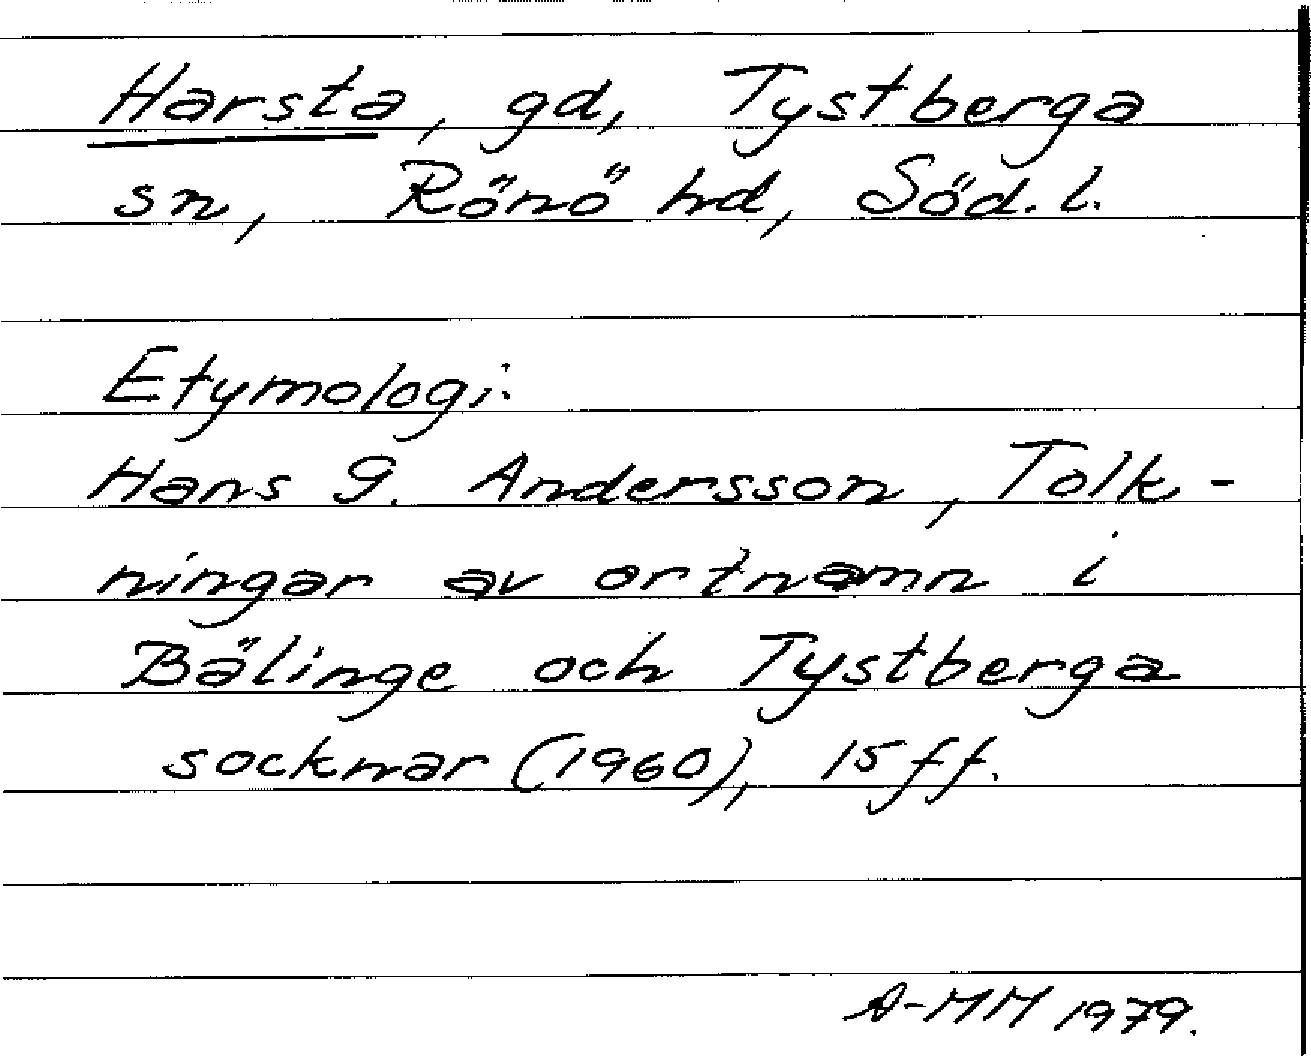 Harsta, gd, Tystberga
sn, Rönö hd, Söd. l.
Etymologi:
Hans G. Andersson, Tolk-
ningar av ortnamn i
Bälinge och Tystberga
socknar (1960), 15 ff.
A-MM 1979.